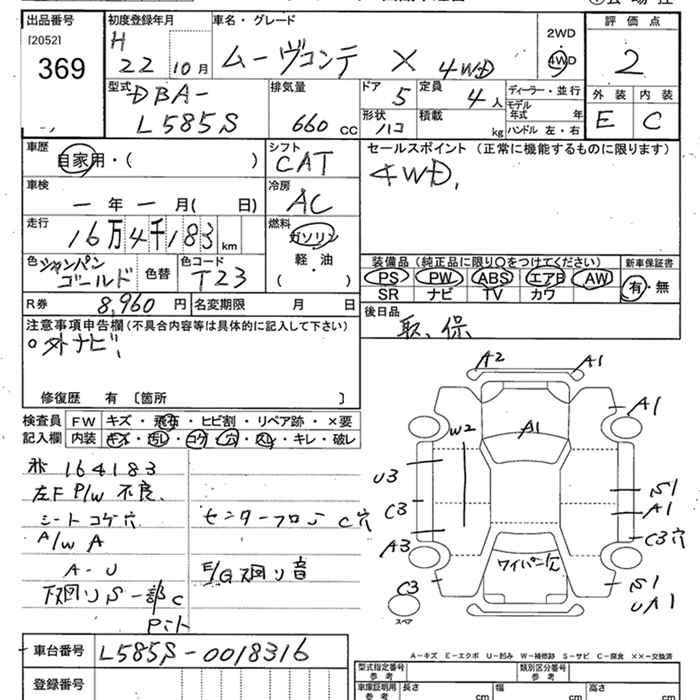 出品番号 初度登録年月 車名・グレード 評価点
[2052] H ムーヴコンテ X 4WD 2WD・4WD 2
369 22 10月
外装 内装
E C
型式 DBA- L585S 排気量 660 CC ドア 5 定員 4人 ディーラー・並行
形状 ハコ 積載 kg モデル年式 年 ハンドル 左・右
車歴 自家用・( ) シフト CAT セールスポイント (正常に機能するものに限ります)
4WD,
車検 一年一月( 日) 冷房 AC
走行 16万4千183km 燃料 ガソリン 軽・油 ( )
装備品(純正品に限り○をつけてください) 新車保証書
PS PW ABS エアB AW 有・無
SR ナビ TV カワ
色 シャンパンゴールド 色替 色コード T23
R券 8,960円 名変期限 月 日 後日品
取、保
注意事項申告欄(不具合内容等は具体的に記入して下さい)
○外ナビ、
修復歴 有 〔箇所 〕
検査員 FW キズ・飛石・ヒビ割・リペア跡・×要
記入欄 内装 キズ・汚レ・コゲ・穴・スレ・キレ・破レ
164183
左F P/W 不良.
シートコゲ穴 センターフロア C穴
A/W A
A-U E/G廻り音
下廻りS一部C
Pミト
A2 A1
A1
W2 A1
U3
C3
A3
S1
A1
C3穴
ワイパー穴
C3
スペア
S1
UA1
A-キズ E-エクボ U-凹み W-補修跡 S-サビ C-腐食 XX-交換済
車台番号 L585S-0018316
登録番号
型式指定番号 参考 類別区分番号 参考
車庫証明用 参考 長さ cm 幅 cm 高さ cm